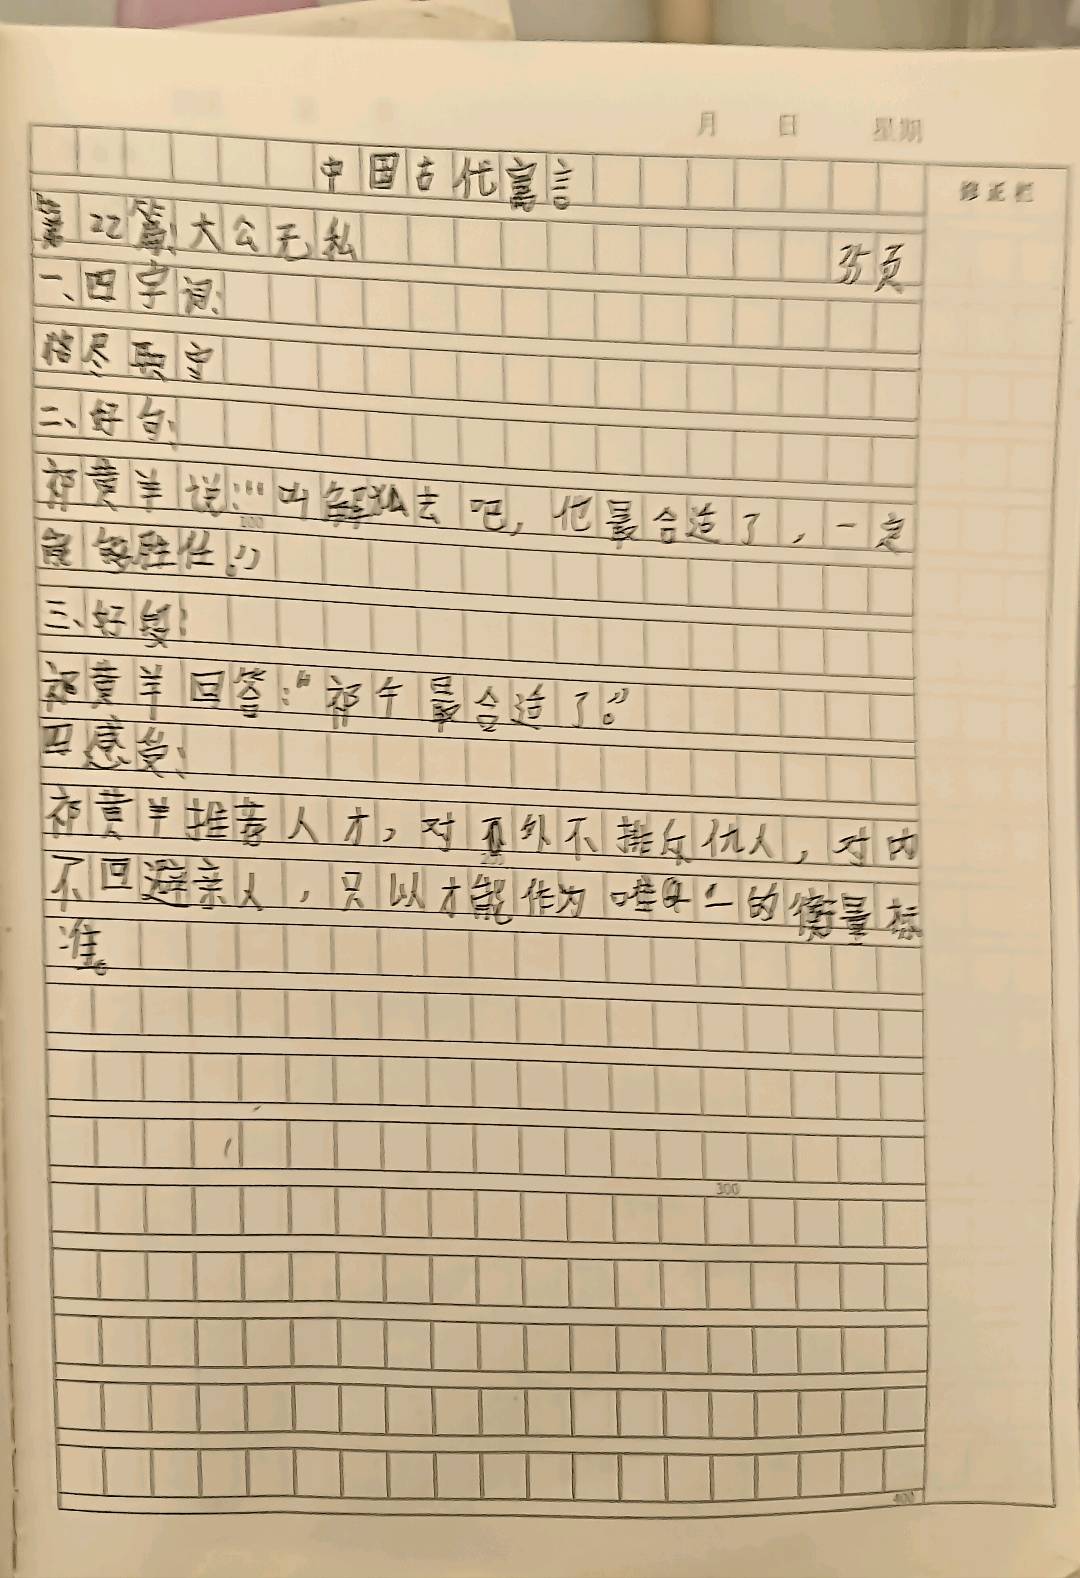 月 日 星期
修正栏
中国古代寓言
第22篇大公无私 35页
一、四字词:
恪尽职守
二、好句:
祁黄羊说:“叫解狐去吧,他最合适了,一定
能够胜任。”
三、好段:
祁黄羊回答:“祁午最合适了。”
四感发:
祁黄羊推荐人才,对外不排斥仇人,对内
不回避亲人,只以才能作为唯一的衡量标
准。
100
200
300
400